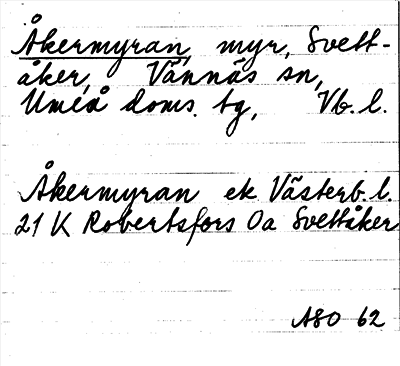 Åkermyran, myr, Svett-
åker, Vännäs sn,
Umeå doms. tg, Vb. l.
Åkermyran ek Västerb. l.
21 K Robertsfors 0a Svettåker
ASO 62